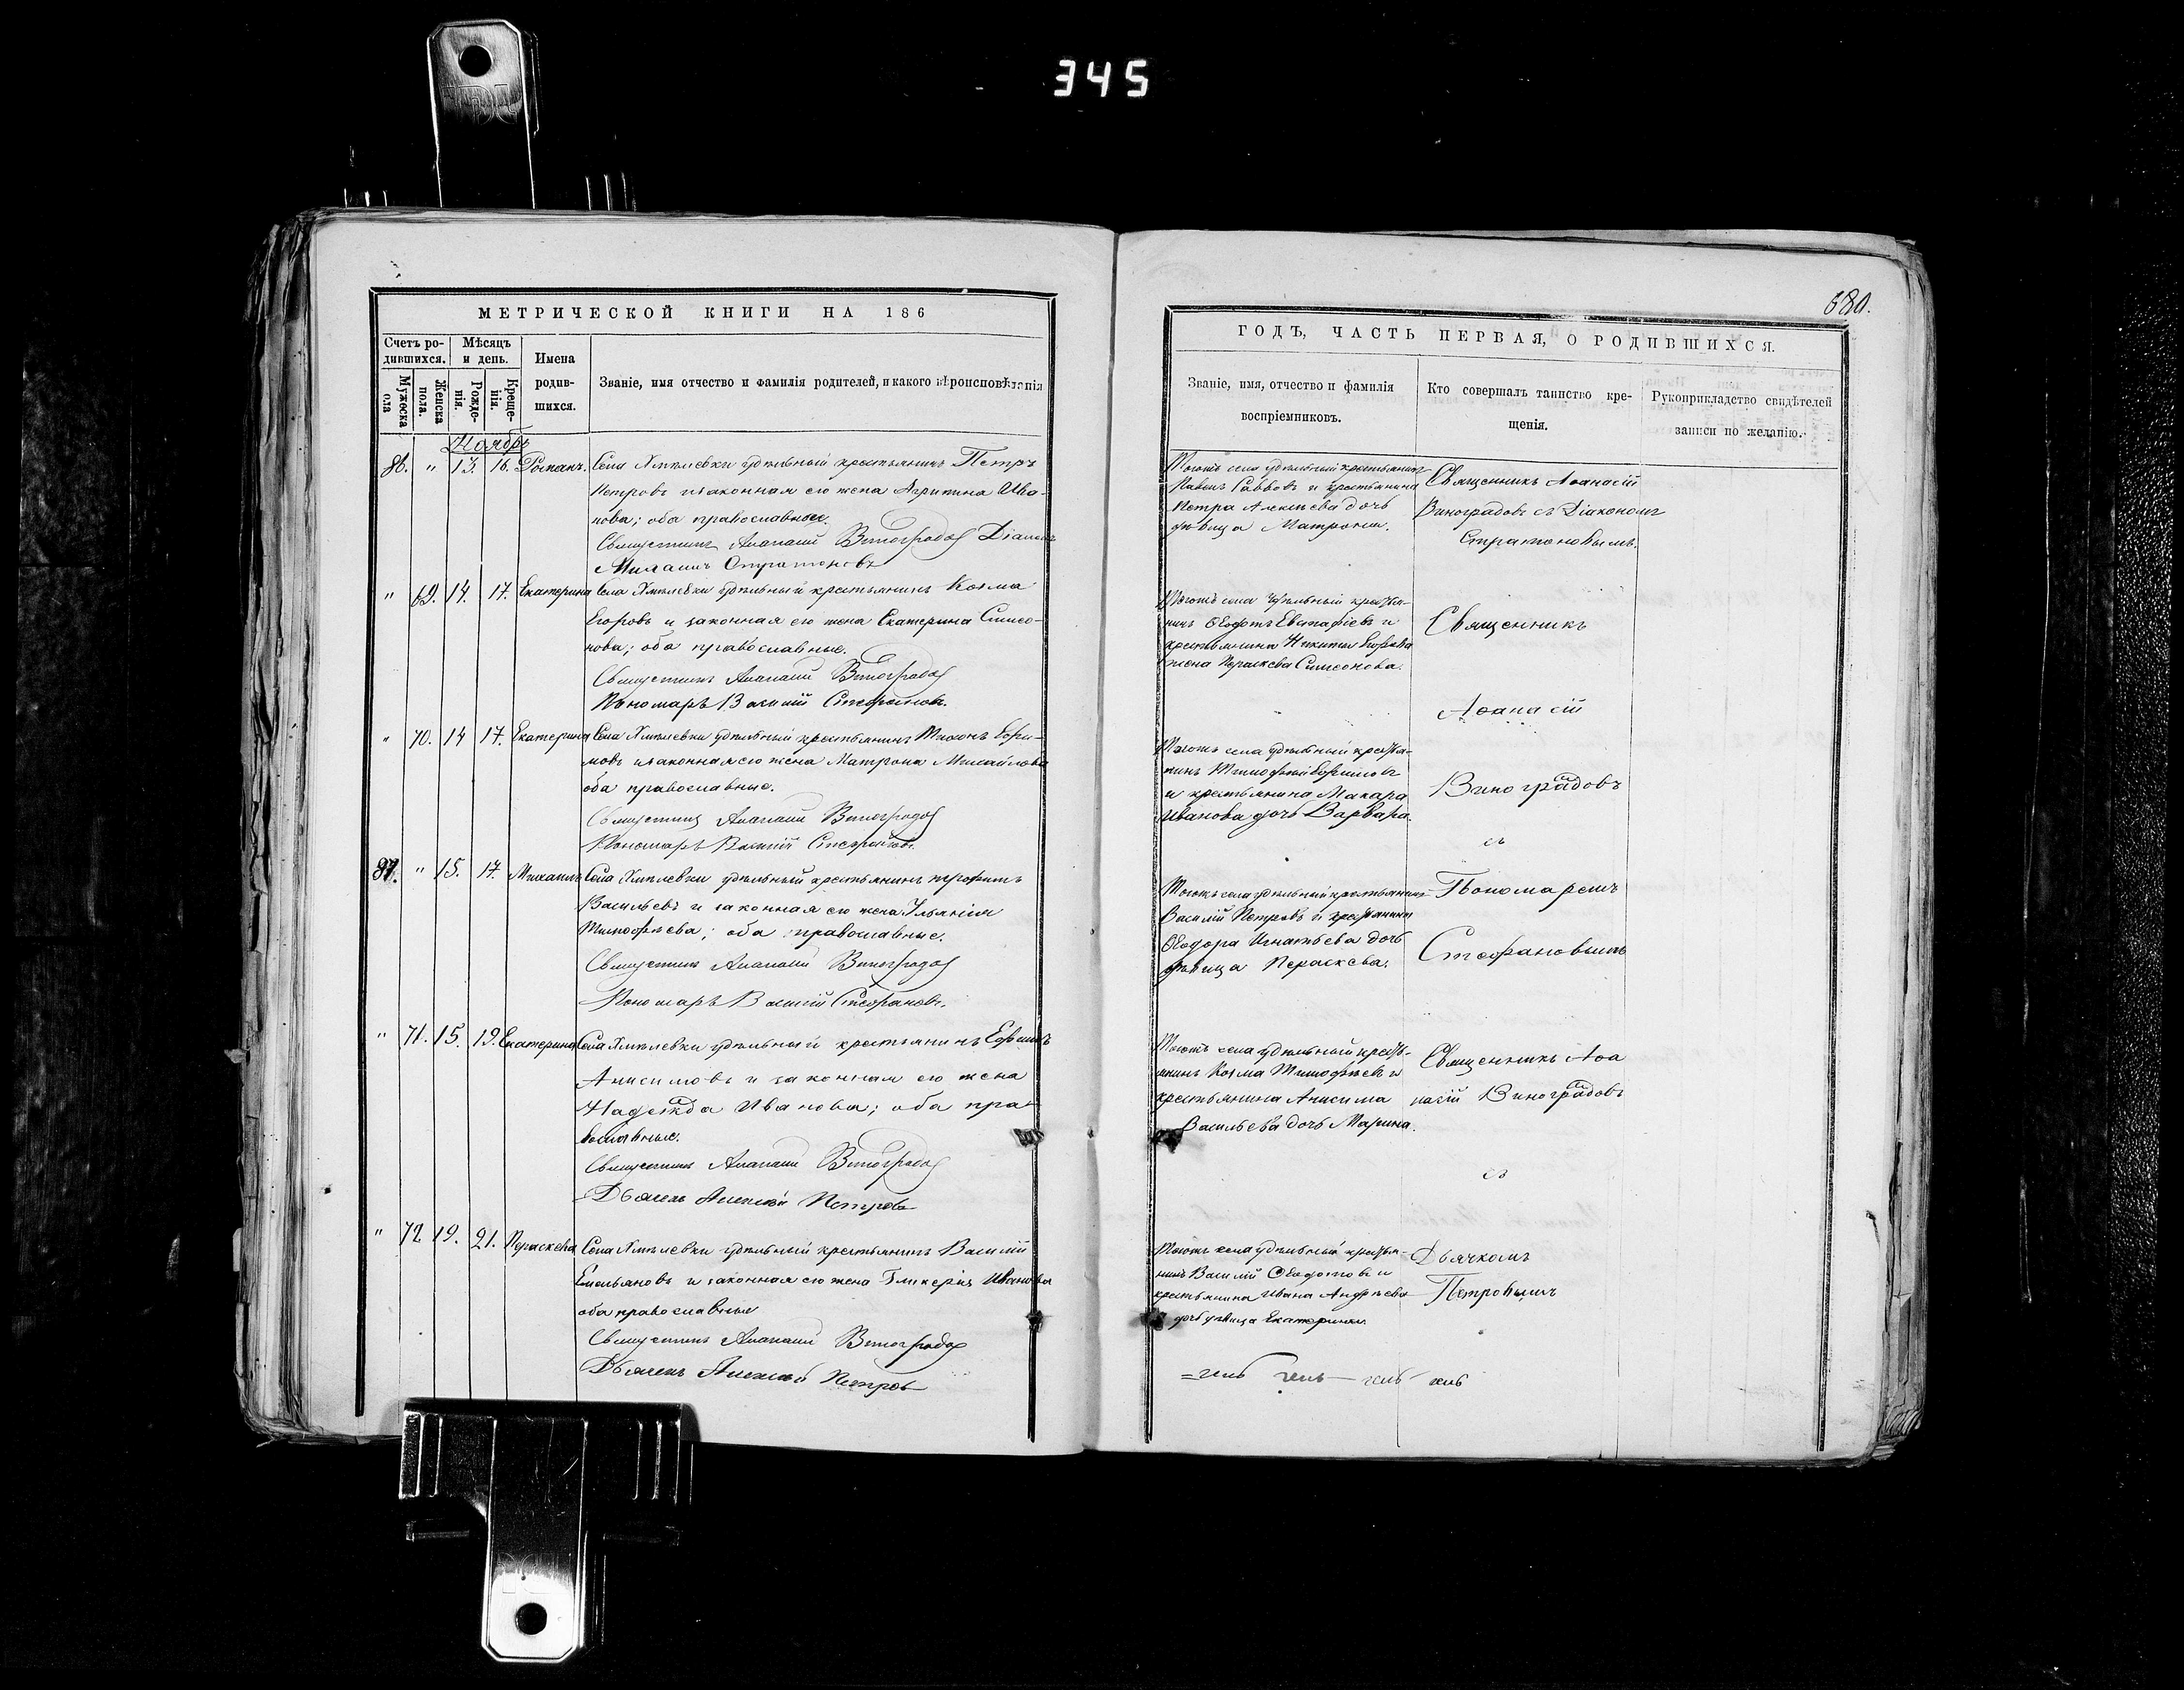 345
680.
МЕТРИЧЕСКОЙ КНИГИ НА 186
Счетъ ро-
дившихся.
Мѣсяцъ
и день.
Мужеска
ола
Женска
пола.
Рожде-
нія.
Креще-
нія.
Имена
родив-
шихся.
Званіе, имя отчество и фамилія родителей, и какого вѣроисповѣданія
Ноябрь
86. " 13. 16. Романъ. Села Хмѣлевки удѣльный крестьянинъ Петръ
Петровъ и законная его жена Агрипина Ива-
нова; оба православные.
Священникъ Аѳанасій Виноградовъ Діаконъ
Михаилъ Стратоновъ
" 69. 14. 17. Екатерина Села Хмѣлевки удѣльный крестьянинъ Козма
Егоровъ и законная его жена Екатерина Симео-
нова; оба православные.
Священникъ Аѳанасій Виноградовъ
Пономарь Василій Стефановъ.
" 70. 14 17. Екатерина Села Хмѣлевки удѣльный крестьянинъ Тихонъ Ефи-
мовъ и законная его жена Матрона Михайлова
оба православные.
Священникъ Аѳанасій Виноградовъ
Пономарь Василій Стефановъ.
87. " 15. 17. Михаилъ Села Хмѣлевки удѣльный крестьянинъ Трофимъ
Васильевъ и законная его жена Ульянія
Тимофѣева; оба православные.
Священникъ Аѳанасій Виноградовъ
Пономарь Василій Стефановъ.
" 71. 15. 19. Екатерина Села Хмѣлевки удѣльный крестьянинъ Ефимъ
Анисимовъ и законная его жена
Надежда Иванова; оба пра-
вославные.
Священникъ Аѳанасій Виноградовъ
Дьячекъ Алексѣй Петровъ
" 72. 19. 21. Параскева Села Хмѣлевки удѣльный крестьянинъ Василій
Емельяновъ и законная его жена Гликерія Иванова
оба православные
Священникъ Аѳанасій Виноградовъ
Дьячекъ Алексѣй Петровъ
ГОДЪ, ЧАСТЬ ПЕРВАЯ, О РОДИВШИХСЯ.
Званіе, имя, отчество и фамилія
воспріемниковъ.
Кто совершалъ таинство кре-
щенія.
Рукоприкладство свидѣтелей
записи по желанію.
Тогожъ села удѣльный крестьянинъ
Павелъ Саввовъ и крестьянина
Петра Алексѣева дочь
дѣвица Матрона.
Священникъ Аѳанасій
Виноградовъ съ Діакономъ
Стратоновымъ.
Тогожъ села удѣльный крестья-
нинъ Ѳеодотъ Евстафіевъ и
крестьянина Никиты Егорова
жена Параскева Симеонова.
Священникъ
Аѳанасій
Тогожъ села удѣльный крестья-
нинъ Тимофей Ефимовъ
и крестьянина Макара
Иванова дочь Варвара.
Виноградовъ
съ
Тогожъ села удѣльный крестьянинъ
Василій Петровъ и крестьянина
Ѳеодора Игнатьева дочь
дѣвица Параскева.
Пономаремъ
Стефановымъ
Тогожъ села удѣльный кресть-
янинъ Козма Тимофѣевъ и
крестьянина Анисима
Васильева дочь Марина.
Священникъ Аѳа
насій Виноградовъ
съ
Тогожъ села удѣльный крестья-
нинъ Василій Ѳеодотовъ и
крестьянина Ивана Андрѣева
дочь дѣвица Екатерина.
Дьячкомъ
Петровымъ